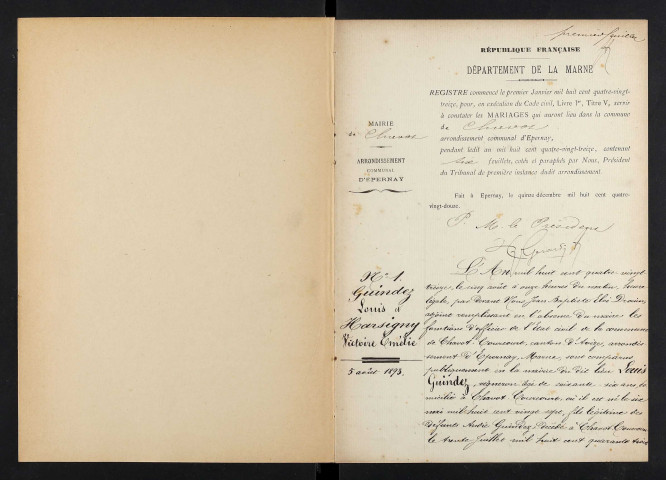 premier feuillet
RÉPUBLIQUE FRANÇAISE
DÉPARTEMENT DE LA MARNE
REGISTRE commencé le premier Janvier mil huit cent quatre-vingt-
treize, pour, en exécution du Code civil, Livre Iᵉʳ, Titre V, servir
à constater les MARIAGES qui auront lieu dans la commune
de Chavot
arrondissement communal d'Epernay,
pendant ledit an mil huit cent quatre-vingt-treize, contenant
six feuillets, cotés et paraphés par Nous, Président
du Tribunal de première instance dudit arrondissement.
Fait à Epernay, le quinze décembre mil huit cent quatre-
vingt-douze.
P. M. le Président
MAIRIE
de Chavot
ARRONDISSEMENT
COMMUNAL
D'ÉPERNAY
Nº 1.
Guindez
Louis &
Harsigny
Victoire Emélie
5 août 1893.
L'An mil huit cent quatre-vingt
treize, le cinq août à onze heures du matin, heure
légale, par devant Nous Jean Baptiste Eloi
adjoint remplissant en l'absence du maire les
fonctions d'officier de l'Etat civil de la commune
de Chavot-Courcourt, canton d'Avize, arrondis-
sement d'Epernay, Marne, sont comparus
publiquement en la mairie du dit lieu Louis
Guindez, vigneron âgé de soixante six ans, do-
micilié à Chavot Courcourt, où il est né le six
mai mil huit cent vingt sept, fils légitime des
défunts André Guindez, décédé à Chavot Courcourt
le trente Juillet mil huit cent quarante trois